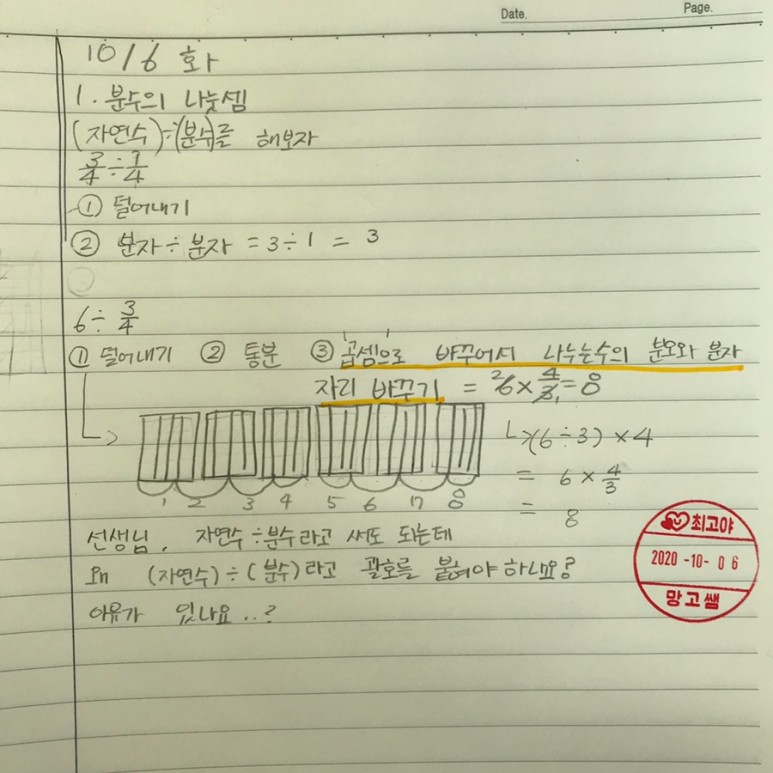 Date.
Page.
10/6 화
1. 분수의 나눗셈
(자연수)÷(분수)를 해보자
3/4 ÷ 1/4
① 덜어내기
② 분자 ÷ 분자 = 3÷1 = 3
6 ÷ 3/4
① 덜어내기 ② 통분 ③ 곱셈으로 바꾸어서 나누는수의 분모와 분자
자리 바꾸기 = 6 × 4/3 = 8
(6÷3)×4
= 6 × 4/3
= 8
1 2 3 4 5 6 7 8
선생님, 자연수÷분수라고 써도 되는데
왜 (자연수)÷(분수)라고 괄호를 붙여야 하나요?
이유가 있나요..?
최고야
2020-10-06
망고쌤